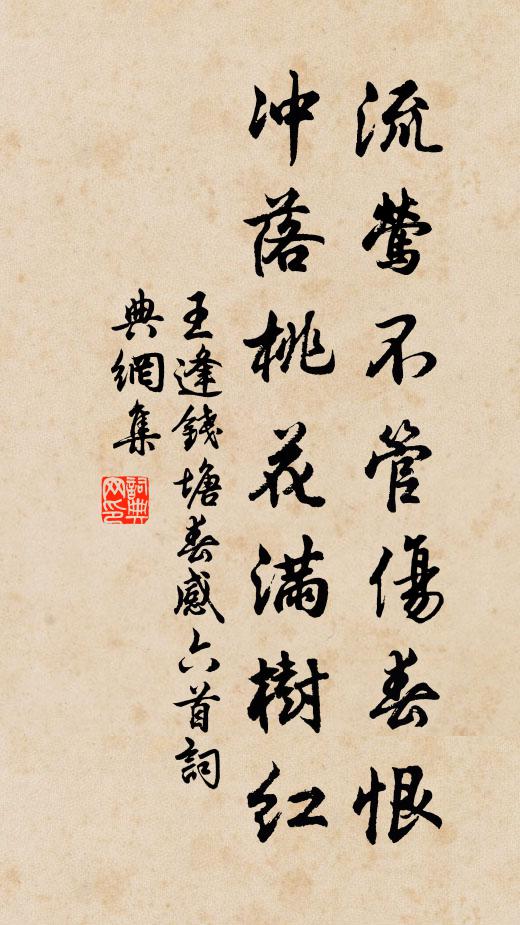 流莺不管傷春恨
冲落桃花滿樹红
王逢錢塘春感六首詞
典網集
詞典
网印